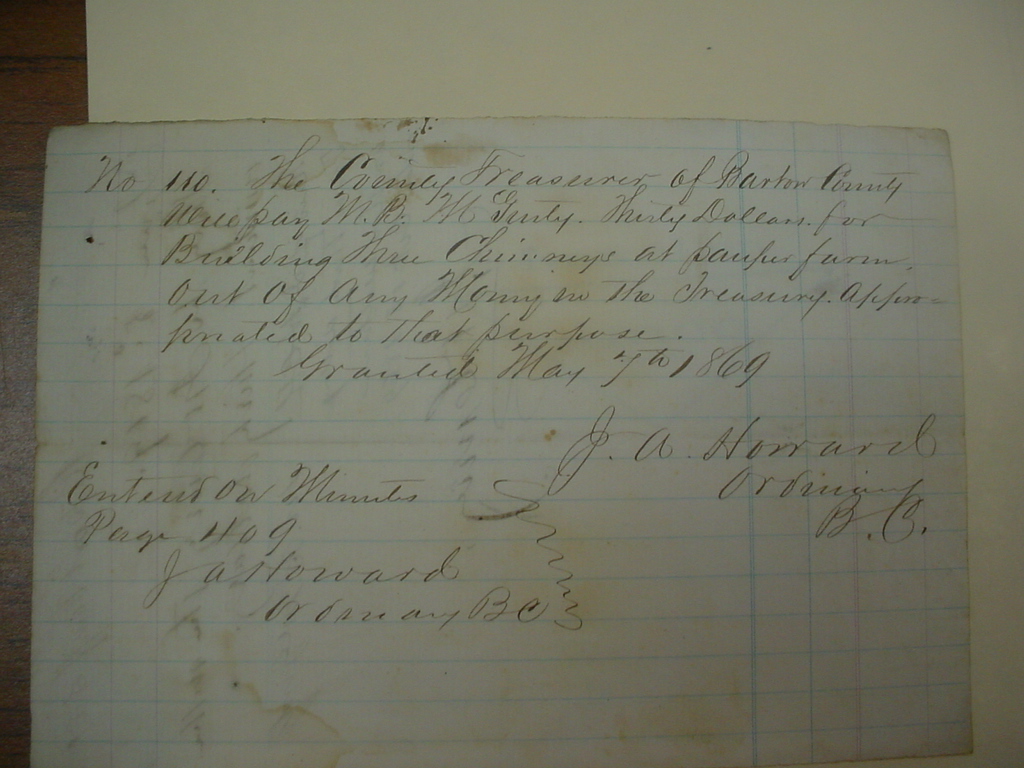 No 110. The County Treasurer of Bartow County
Will pay M. B. McGinty. Thirty Dollars. for
Building Three Chimneys at pauper farm.
Out Of Any Money in the Treasury. Appro-
priated to that purpose.
Granted May 7th 1869
J. A. Howard
Ordinary
B. C.
Enterd On Minutes
Page 409
J A Howard
Ordinary B C